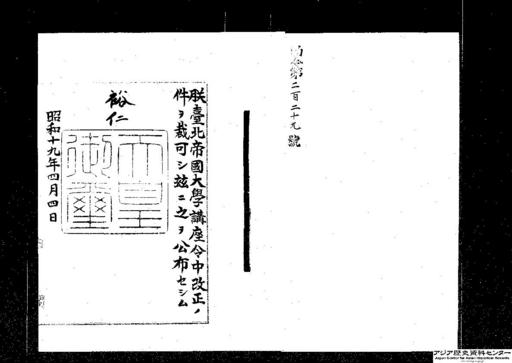 勅令第二百二十九號
朕臺北帝國大學講座令中改正ノ
件ヲ裁可シ玆ニ之ヲ公布セシム
裕仁
天皇
御璽
昭和十九年四月四日
アジア歴史資料センター
Japan Center for Asian Historical Records